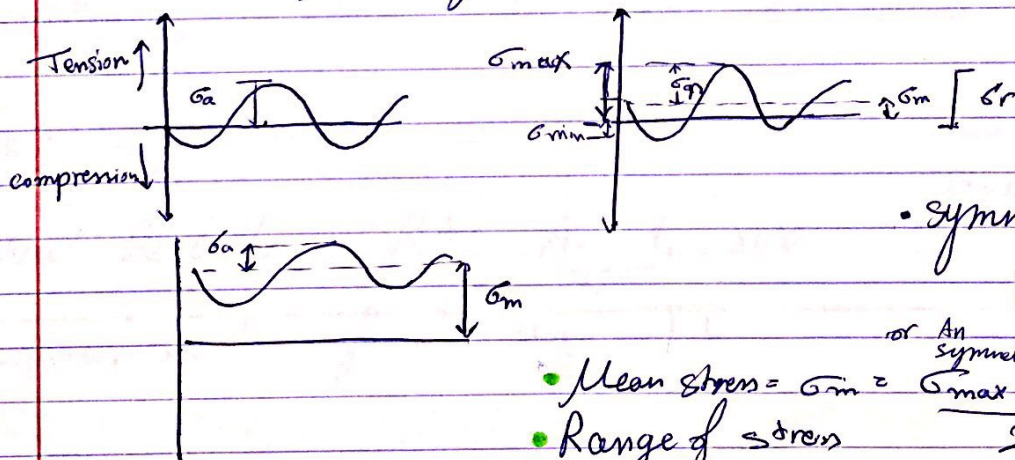 Tension
σa
compression
σmax
σa
σmin
σm
σr
• symm
σa
σm
or An
symme
• Mean stress = σm = σmax
2
• Range of stress